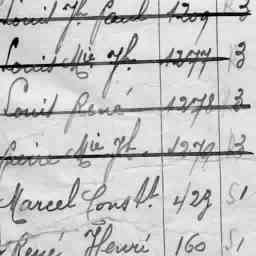 Louis Jh Paul 1209 13
Louis Mie Jh. 1277 13
Louis René 1278 13
Pierre Mie Jh. 1279 13
Marcel Const. 423 S1
René Henri 160 S1